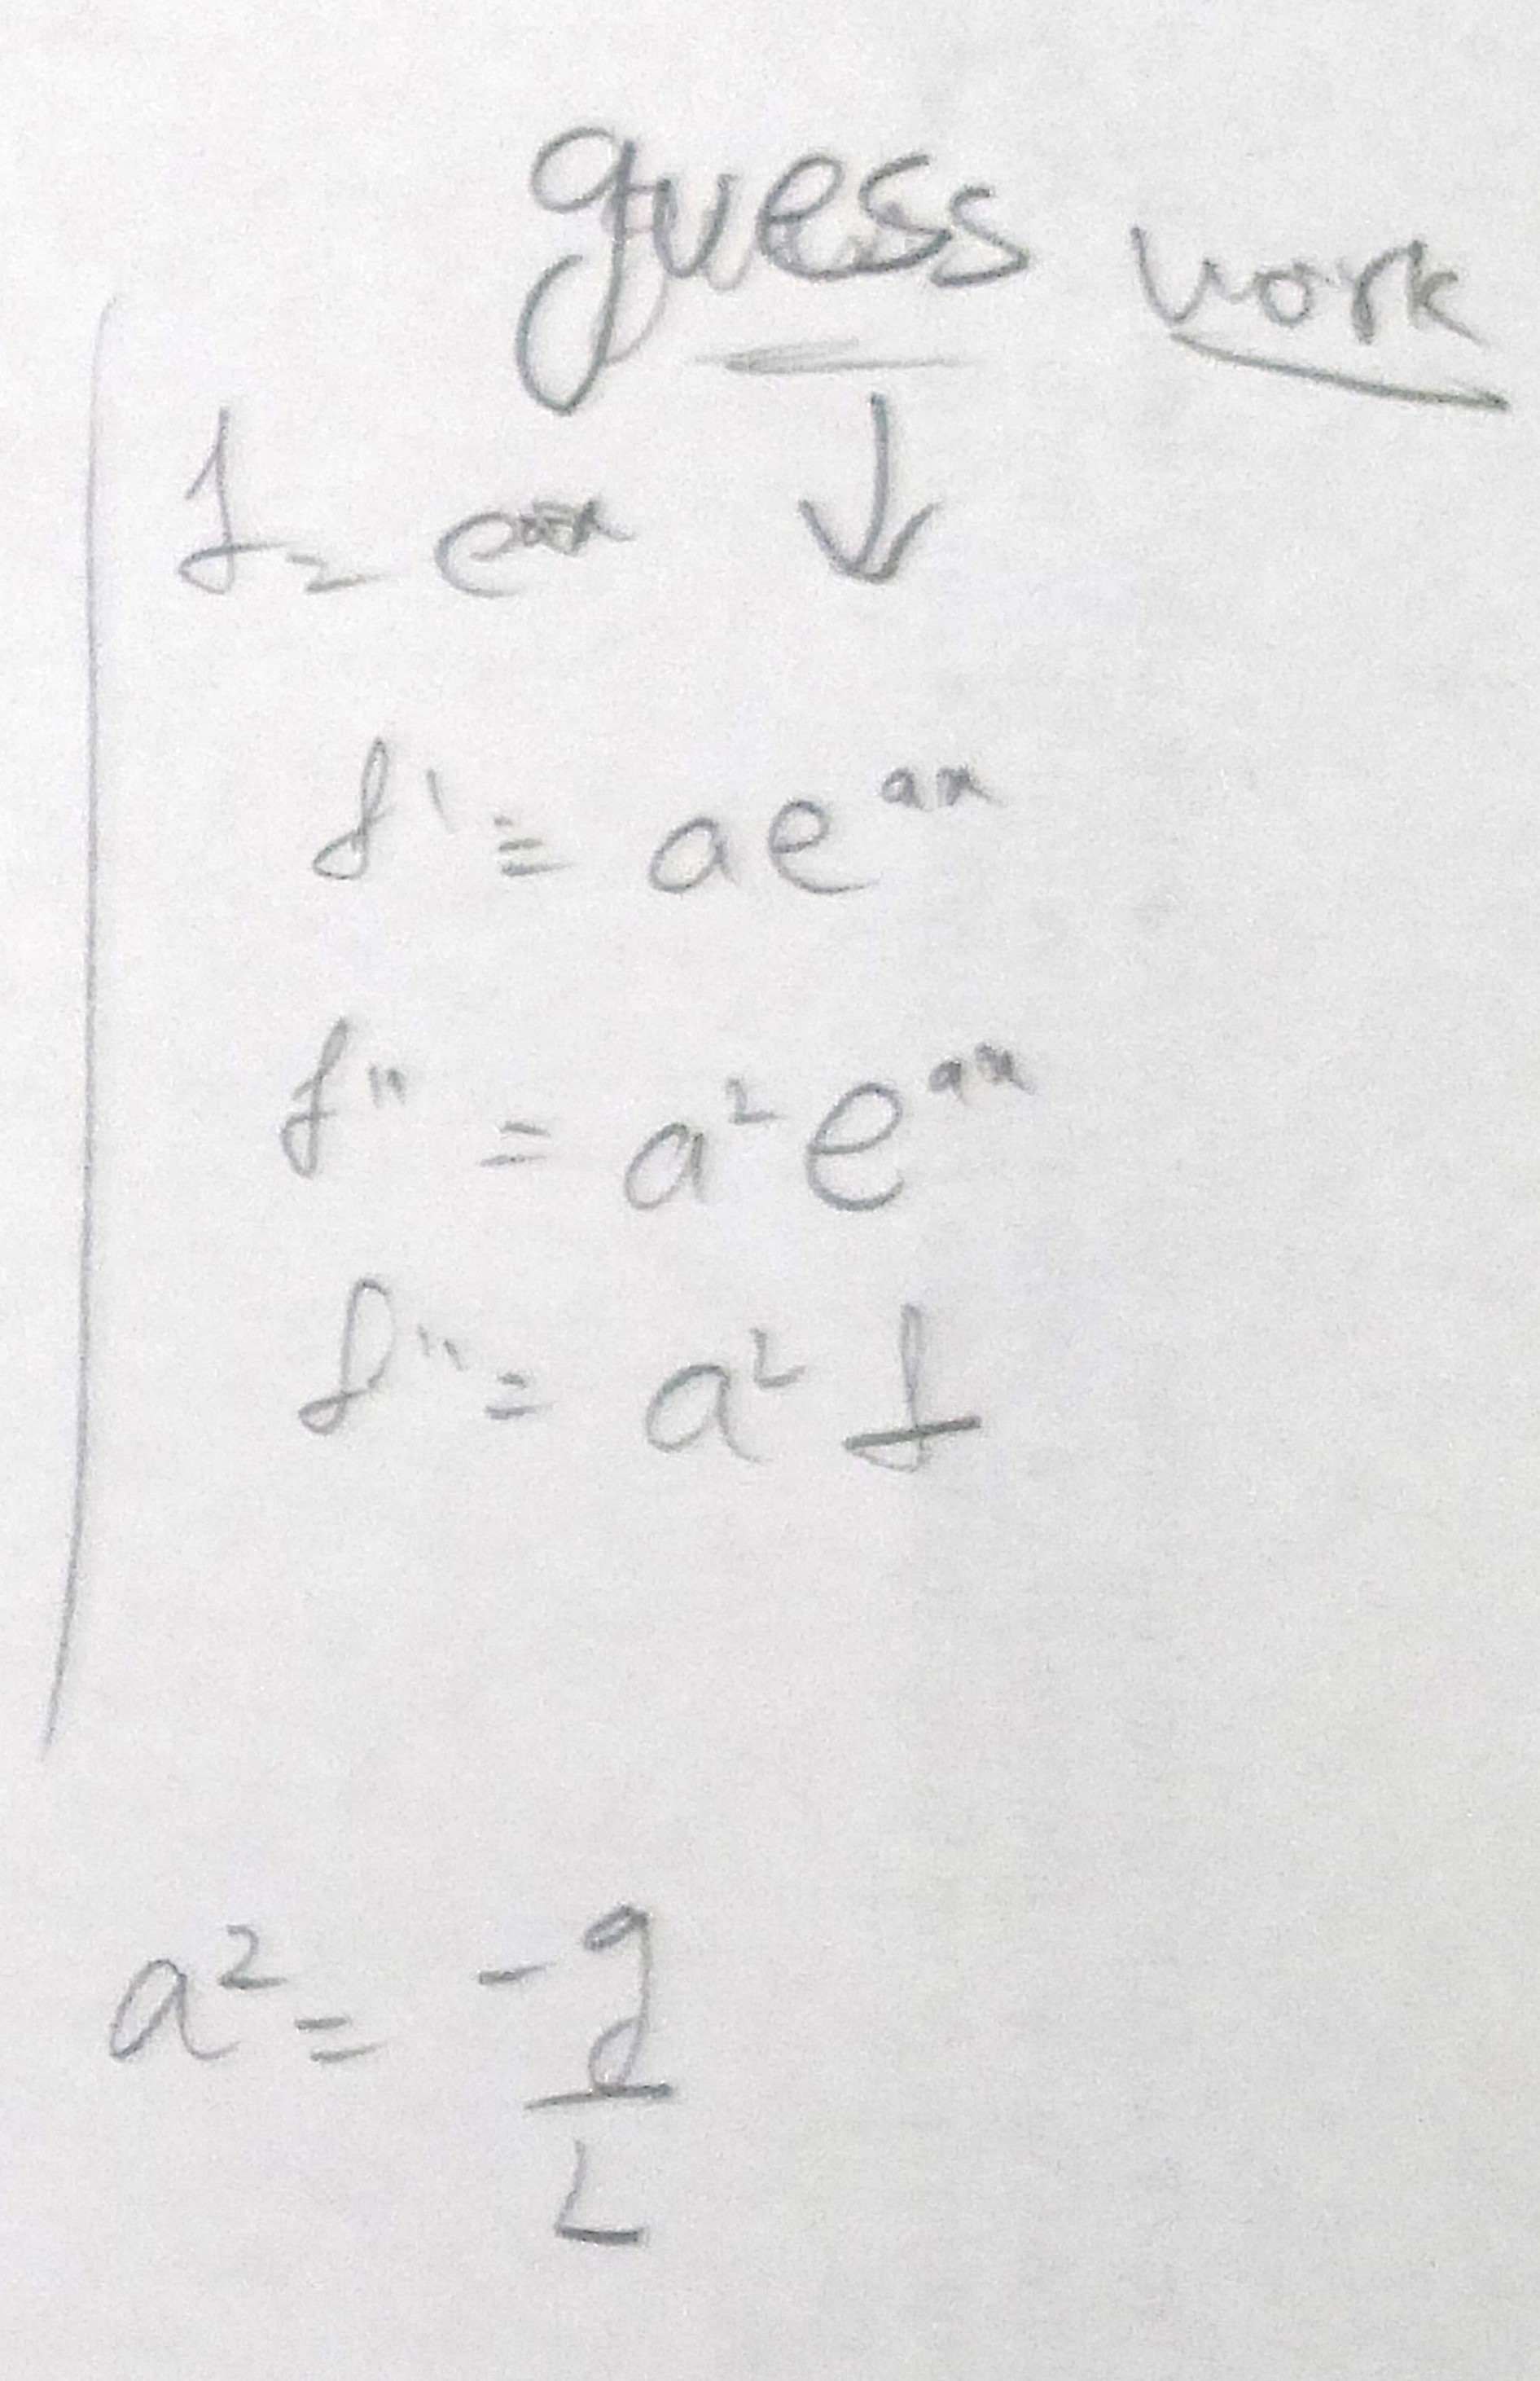 guess work
↓
f = e^{ax}
f' = ae^{ax}
f'' = a²e^{ax}
f'' = a² f
a² = -g/L